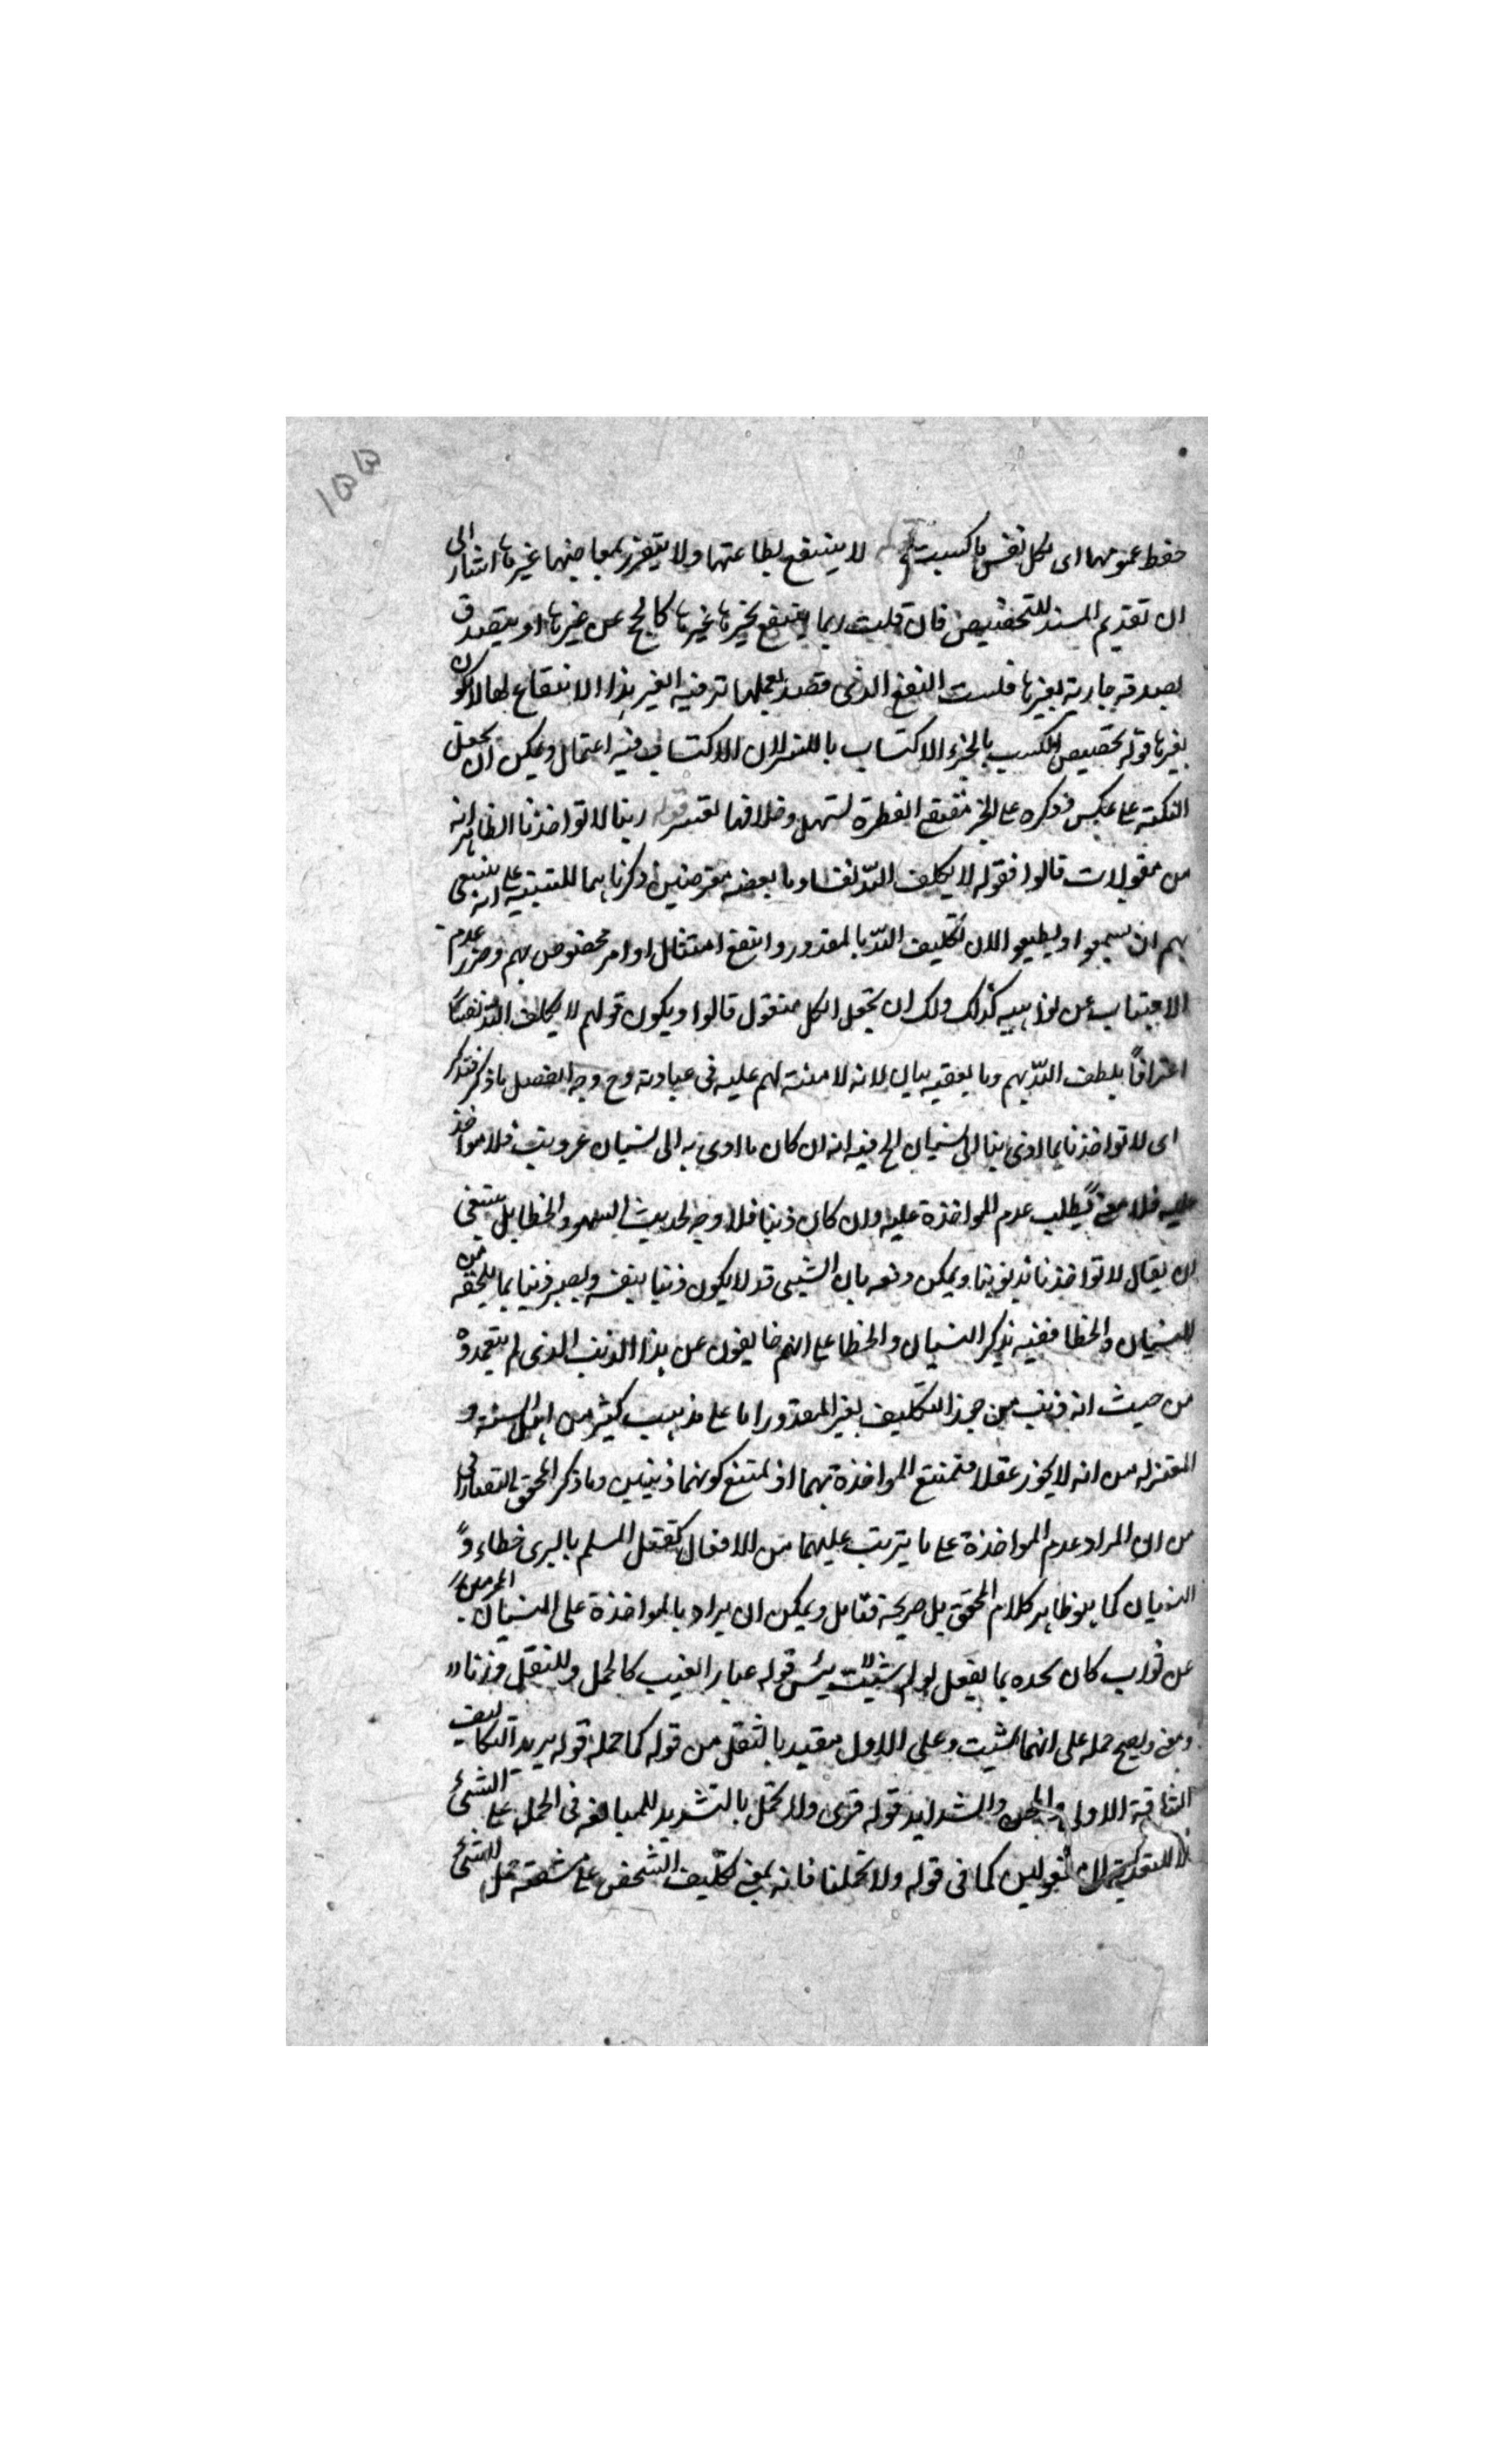 ١٥٥
حفظ عمومهما اى لكل نفس ما كسبت لا ينتفع بطاعتها ولا يتضرر بمعاصيها غيرها اشار الى
ان تقديم المسند للتخصيص فان قلت ربما ينتفع بخيرها غيرها كالحج عن غيرها او يتصدق
بصدقة جارية لغيرها قلت النفع الذى قصد بعملها ترفيه الغير بهذا الانتفاع لها لا يكون
لغيرها قوله تخصيص الكسب بالخير والاكتساب بالشر لان الاكتساب فيه اعتمال ويمكن ان يجعل
النكتة على عكس ذكره على الخير مقتضى الفطرة لسهل وخلافها لقسر قوله ربنا لا تواخذنا الظاهر انه
من مقولات قالوا فقوله لا يكلف الله نفسا وما بعضه معترضين ذكرناهما للتنبيه على انه ينبغى
بهم ان يسمعوا ويطيعوا لان تكليف الله بالمقدور وانتفع امتثال اوامر مخصوص بهم وضرر عدم
الاجتناب عن نواهيه كذلك ولك ان تجعل الكل مقول قالوا ويكون قولهم لا يكلف الله نفسا
اعترافا بلطف الله بهم وما يعقبه بيان لانه لا منة لهم عليه فى عبادته وح وجه الفصل ما ذكر فتذكر
اى لا تواخذنا بما ادى بنا الى نسيان الخ فيه انه ان كان ما ادى به الى نسيان غير ذنب فلا مواخذ
عليه فلا معنى لطلب عدم المواخذة عليه وان كان ذنبا فلا وجه لحديث السهو والخطا بل ينبغى
ان يقال لا تواخذنا بذنوبنا ويمكن دفعه بان الشيى قد لا يكون ذنبا بنفسه ويصير ذنبا بما يلحقه من
النسيان والخطا ففيه يذكر النسيان والخطا على انهم خايفون عن هذا الذنب الذى لم يتعمدوه
من حيث انه ذنب من جوز التكليف بغير المقدور اما على مذهب كثير من اهل السنة و
المعتزلة من انه لا يجوز عقلا فتمتنع المواخذة بهما اذ يمتنع كونهما ذنبين وما ذكر المحقق التفتازانى
من ان المراد عدم المواخذة على ما يترتب عليهما من الافعال كقتل المسلم بالرمى خطاء و
النسيان كما هو ظاهر كلام المحقق بل صريحه فتامل ويمكن ان يراد بالمواخذة على النسيان الحرمان
عن ثواب كان يجده بما يفعل لو لم قوله كالحمل وللثقل وزنا
ومعنى ويصح حمله على انهما وعلى الاول مقيد بالثقل من قوله كما حملته قوله يريد التكاليف
الشاقة الاولى والمحن والشدايد قوله قرى ولا تحمل بالتشديد للمبالغة فى الحمل على الشيئ
لا للتعدية الى مفعولين كما فى قوله ولا تحملنا فانه بمعنى تكليف الشخص على مشقة حمل الشيئ